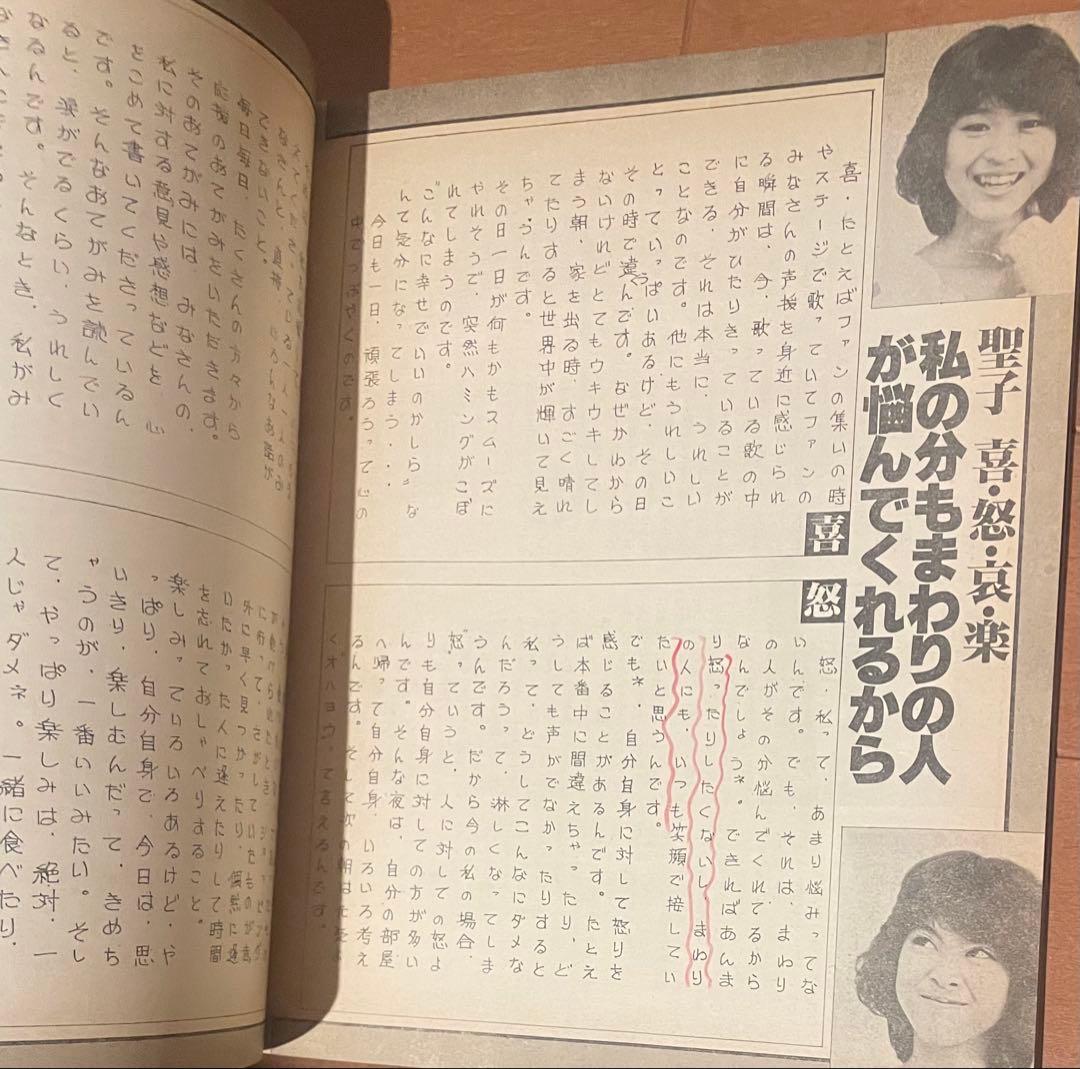 聖子 喜・怒・哀・楽
私の分もまわりの人
が悩んでくれるから
喜
喜・たとえばファンの集いの時
やステージで歌っていてファンの
みなさんの声援を身近に感じられ
る瞬間は、今、歌っている歌の中
に自分がひたりきっていることが
できる、それは本当に、うれしい
ことなのです。他にもうれしいこ
とっていっぱいあるけど、その日
その時で違うんです。なぜかわから
ないけれどとてもウキウキしてし
まう朝、家を出る時、すごく晴れ
てたりすると世界中が輝いて見え
ちゃうんです。
その日一日が何もかもスムーズに
やれそうで、突然ハミングがこぼ
れてしまうのです。
“こんなに幸せでいいのかしら”な
んて気分になってしまう・・
今日も一日、頑張ろうって心の
中でつぶやくのです。
怒
怒・私って、あまり悩みってな
いんです。でも、それは、まわり
の人がその分悩んでくれてるから
なんでしょうネ。できればあんま
り怒ったりしたくないし、まわり
の人にも、いつも笑顔で接してい
たいと思うんです。
でもネ、自分自身に対して怒りを
感じることがあるんです。たとえ
ば本番中に間違えちゃったり、ど
うしても声がでなかったりすると
私って、どうしてこんなにダメな
んだろうって、淋しくなってしま
うんです。だから今の私の場合、
“怒”っていうと、人に対しての怒よ
りも自分自身に対しての方が多い
んです。そんな夜は、自分の部屋
へ帰って自分自身、いろいろ考え
るんです。そして次の朝は元気よ
く“オハヨウ”って言えるんです。
なさんと、直接、
できないこと。
毎日毎日、たくさんの方々から
応援のおてがみをいただきます。
そのおてがみには、みなさんの、
私に対する意見や感想などを、心
をこめて書いてくださっているん
です。そんなおてがみを読んでい
ると、涙がでるくらい、うれしく
なるんです。そんなとき、私がみ
に行って、さがして
外に早く見つかったり、偶然に逢
いたかった人に逢えたりして時間
を忘れておしゃべりすること。
楽しみっていろいろあるけど、や
っぱり、自分自身で、今日は、思
いきり、楽しむんだって、きめち
ゃうのが、一番いいみたい。そし
て、やっぱり楽しみは、絶対、一
人じゃダメネ。一緒に食べたり、